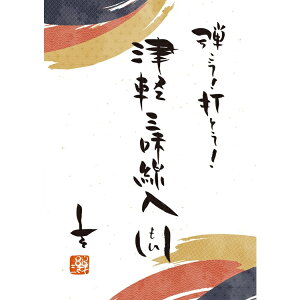 弾こう!打とう!
津軽三味線入門